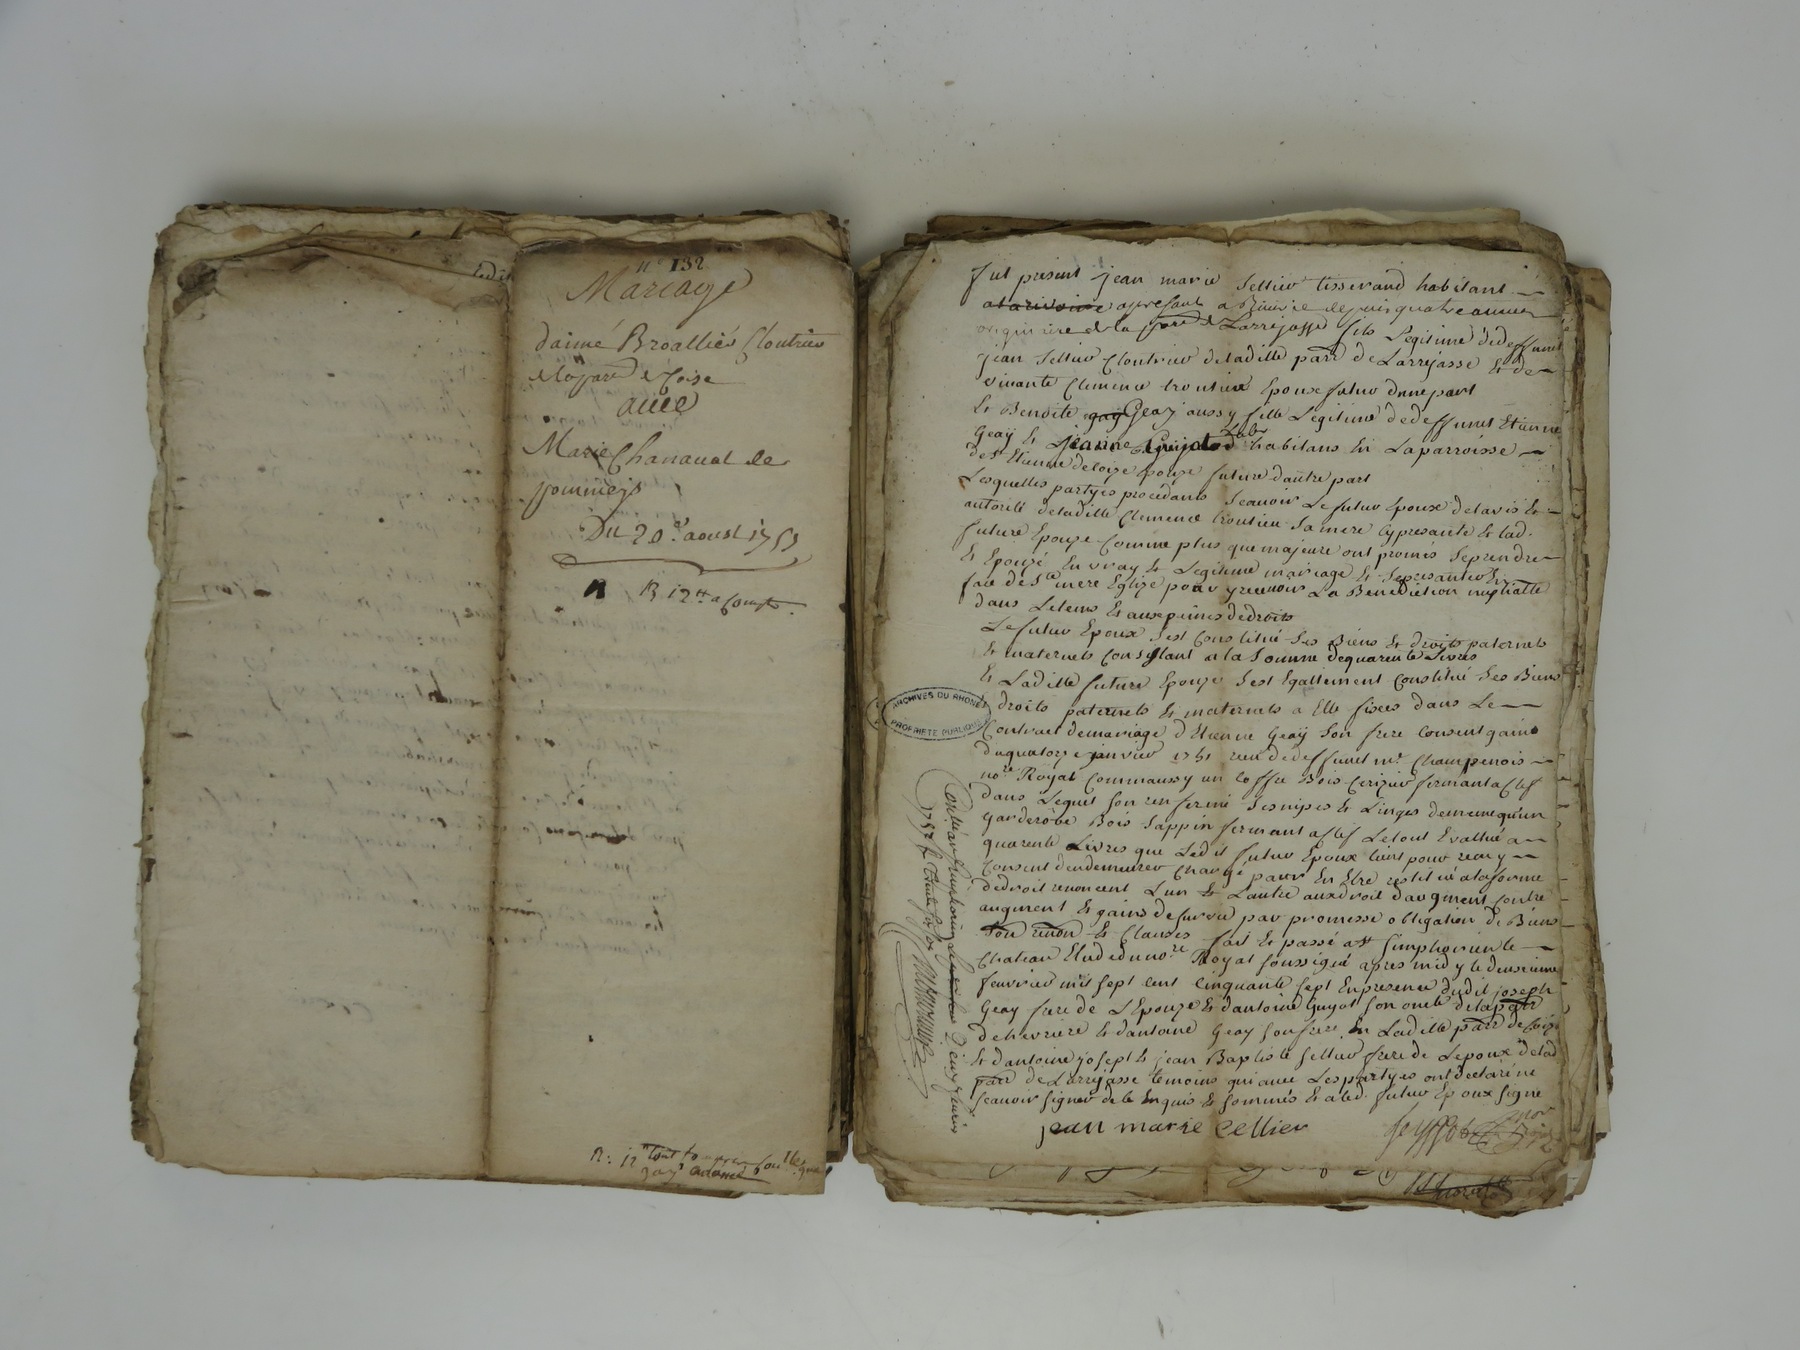 n° 132
Mariage
daimé Broallier Cloutrier
de la parr de Coise
avec
Marie Chanaval de
pommeys
Du 20e aoust 1753
R 12tt a compte.
fut present jean marie Sellier tisserand habitant
apresant a depuis quatre années
originaire de la parr de Larrejasse fils Legitime de deffunt
jean Sellier Cloutrier de ladille parr de Larrejasse Et de
vivante Clemence trouttier Epoux futur dune part
Et Benoite Geay aussy fille Legitime de deffunt Etienne
Geay Et jeanne habitans En La parroisse
de St Etienne de Coize Epouze future dautre part
Lesquelles partyes procedants Scavoir Le futur Epoux de lavis Et
autorité de ladille Clemence trouttier Sa mere Cy presante Et lad.
future Epouze Comme plus que majeure ont promis Se prendre
Et Epouzé En vray Et Legitime mariage Et Se presanter En
face de Ste mere Eglize pour y recevoir La Benediction nuptialle
dans Le tems Et aux peines de droits
Le futur Epoux Sest Constitué Ses Biens Et droits paternels
Et maternels Consistant a la Somme de quarente Livres
Et Ladille future Epouze Sest Egallement Constitué Ses Biens
ARCHIVES DU RHONE
PROPRIETE PUBLIQUE
droits paternels Et maternels a Elle fixées dans Le
Contract de mariage d'Etienne Geay Son frere
du quatorze janvier 1751 receu de deffunct mr Champenois
nore Royal Comme aussy un Coffre Bois Cerizier fermant a Clef
dans Lequel Son renfermé Ses nipes Et Linges de meme qu'un
garderobe Bois Sappin fermant a Clef Le tout Evallué a
quarente Livres que Ledit futur Epoux tient pour recu y
Consent den demeurer Chargé pour En Etre restitué a la forme
de droit renoncent Lun Et Lautre aux droit daugment contre
augment Et gains de survie par promesse obligation de Biens
Et Clauses fait Et passé a St Simphorien le
Chateau Etude du nore Royal Soussigné apres midy le deuxieme
feuvrier mil sept cent Cinquante sept En presence dudit joseph
Geay frere de L'Epouze Et dantoine Guyot Son oncle de la parr
de hevriere Et dantoine Geay Son frere En Ladille parr de Coize
Et dantoine joseph Et jean Baptiste Sellier frere de Lepoux de lad
parr de Larrejasse temoins qui avec Les partyes ont declaré ne
Scavoir Signer de ce Enquis Et Sommés Et a led. futur Epoux Signé
jean marie Cellier